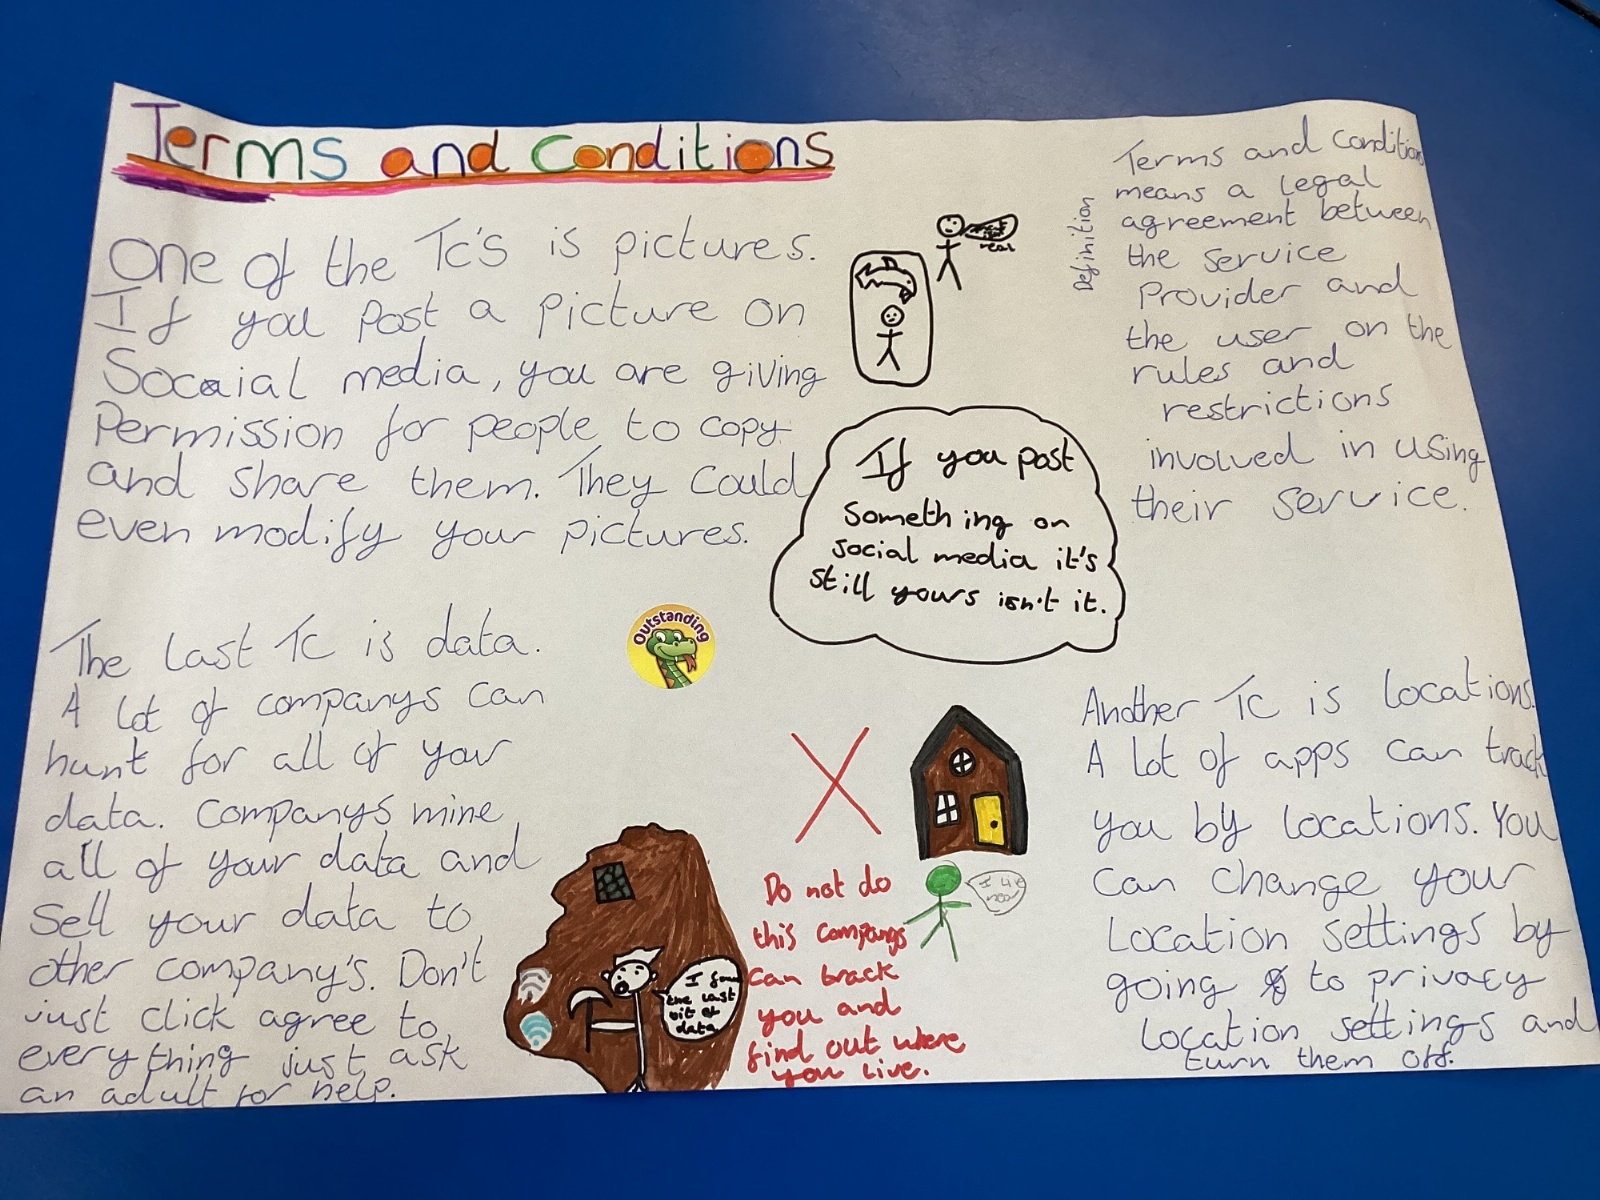 Terms and conditions
One of the Tc's is pictures.
If you post a picture on
Socaial media, you are giving
Permission for people to copy
and share them. They could
even modify your pictures.
real
If you post
something on
social media it's
still yours isn't it.
Definition
Terms and conditions
means a legal
agreement between
the service
Provider and
the user on the
rules and
restrictions
involved in using
their service.
The last Tc is data.
A lot of companys can
hunt for all of your
data. Companys mine
all of your data and
sell your data to
other company's. Don't
just click agree to
everything just ask
an adult for help.
Outstanding
I
the last
bit of
data
Do not do
this companys
can track
you and
find out where
you live.
I live
Another Tc is locations.
A lot of apps can track
you by locations. You
can change your
location settings by
going to privacy
location settings and
turn them off.